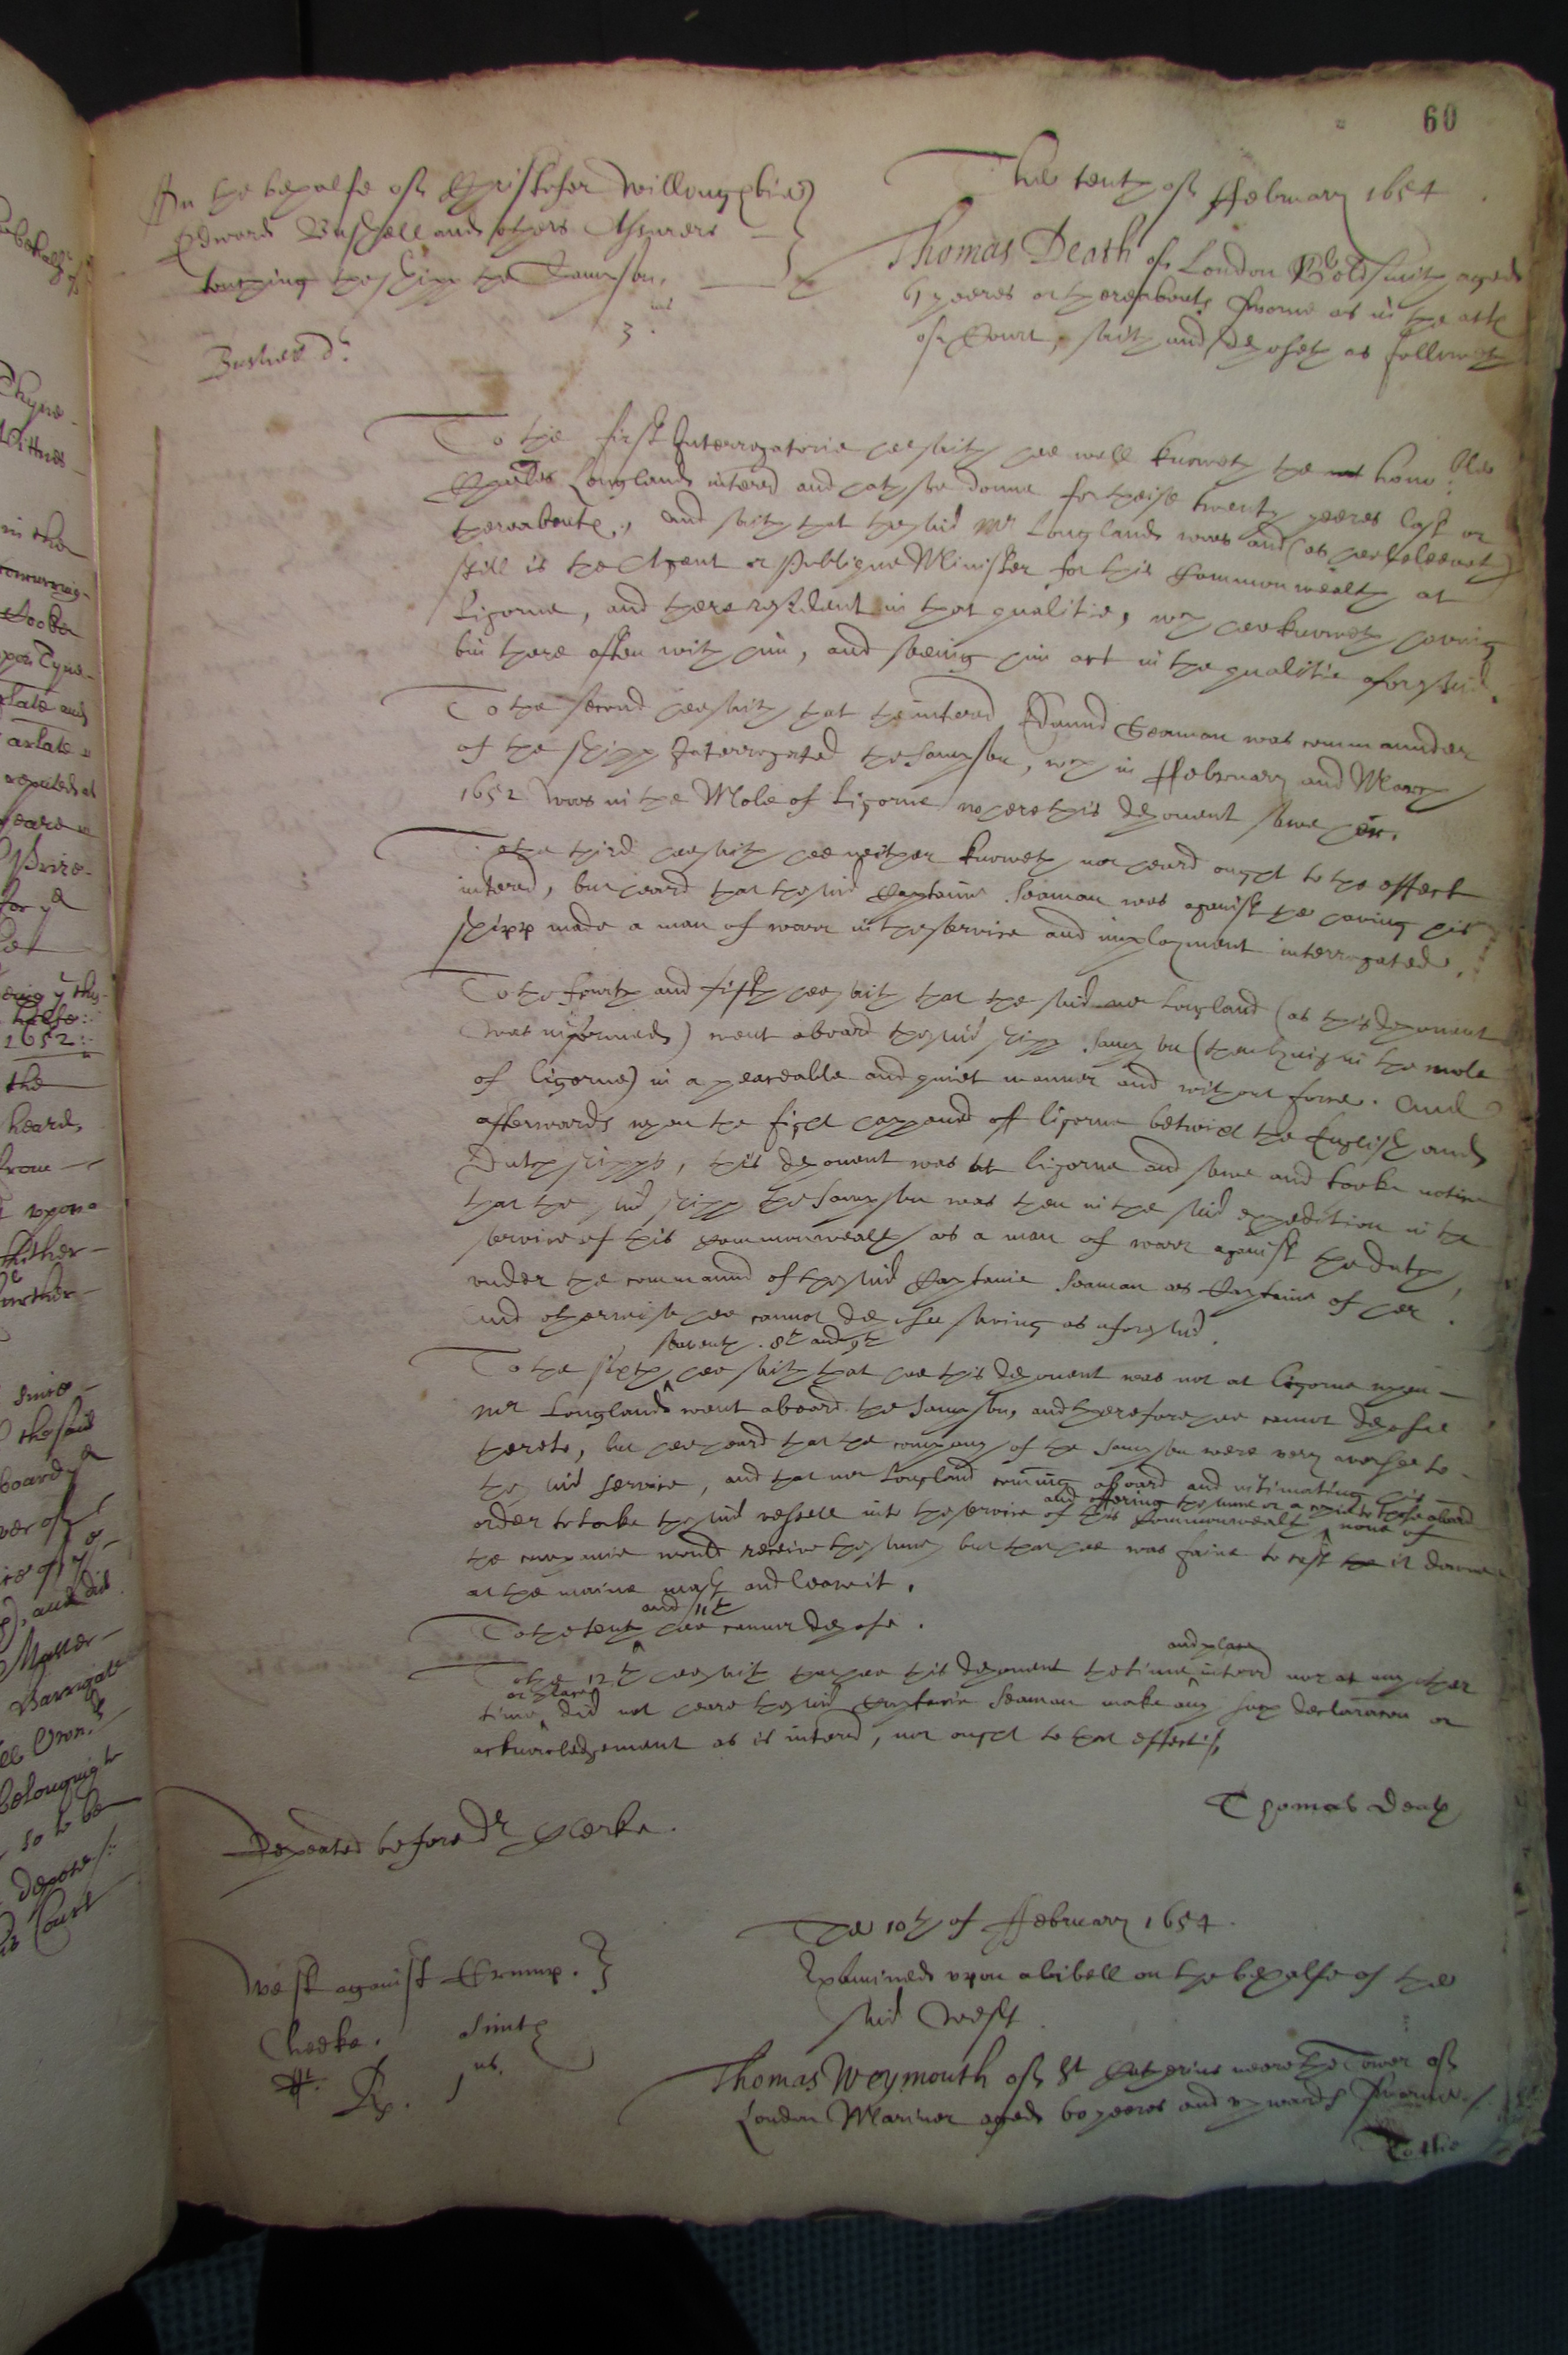 60
The tenth of ffebruary 1654
On the behalfe of Christofer Willoughbie
Edward Bushell and others Assurers
touching the shipp the Sampson,
3us
Bushell dt.
Thomas Death of London Goldsmith aged
61 yeeres or thereabouts sworne as in the acts
of Court, saith and deposeth as followeth
To the first Interrogatorie hee saith hee well knoweth the honoble
Charles Longlands interred and hath soe donne for theise twenty yeeres last or
thereabouts, and saith that the said Mr Longlands was and (as hee beleeveth)
still is the Agent or Publique Minister for this Commonwealth at
Ligorne, and there resident in that qualitie, wch hee knoweth having
bin there often with him, and seeing him act in the qualitie aforesaid.
To the second hee saith that the interred Edmund Seaman was commaunder
of the shipp Interrogated the Sampson, wch in ffebruary and March
1652 was in the Mole of Ligorne where this deponent sawe her.
To the third hee saith hee neither knoweth nor heard ought to the effect
interred, but heard that the said Captaine Seaman was against the having his
shipp made a man of warr in the service and imployment interrogated.
To the fourth and fifth hee saith that the said mr Longland (as this deponent
was informed) went aboard the said shipp Sampson (then lying in the mole
of Ligorne) in a peaceable and quiet manner and without force. And
afterwards upon the fight happened off Ligorne betwixt the English and
Dutch shipps, this deponent was at Ligorne and sawe and tooke notice
that the said shipp the Sampson was then in the said expedition in the
service of this Commonwealth as a man of warr against the dutch,
under the command of the said Captaine Seaman as Captaine of her.
And otherwise hee cannot depose saving as aforesaid.
seaventh. 8th and 9th
To the sixth hee saith that hee this deponent was not at Ligorne when
mr Longlands went aboard the Sampson, and therefore hee cannot depose
thereto, but hee heard that the company of the Sampson were very averse to
the said service, and that mr Longland coming aboard and intimating his
order to take the said vessell into the service of this Commonwealth
and offering the same or a copie to those aboard
none of
the companie would receive the same, but that hee was faine to cast the it downe
at the maine mast and leave it.
and 11th
To the tenth hee cannot depose.
and place
To the 12th hee saith that hee this deponent the time interred nor at any other
or place
time did not heare the said Captaine Seaman make any such declaracon or
acknowledgement as is interred, nor ought to that effect.
Thomas Death
Repeated before dr Clerke.
The 10th of ffebruary 1654.
West against Crump.
Examined upon a libell on the behalfe of the
said West.
Cheeke. Smith
1us.
Rp.
Thomas Weymouth of St Katherins neere the Tower of
London Mariner aged 60 yeeres and upwards sworne
To the